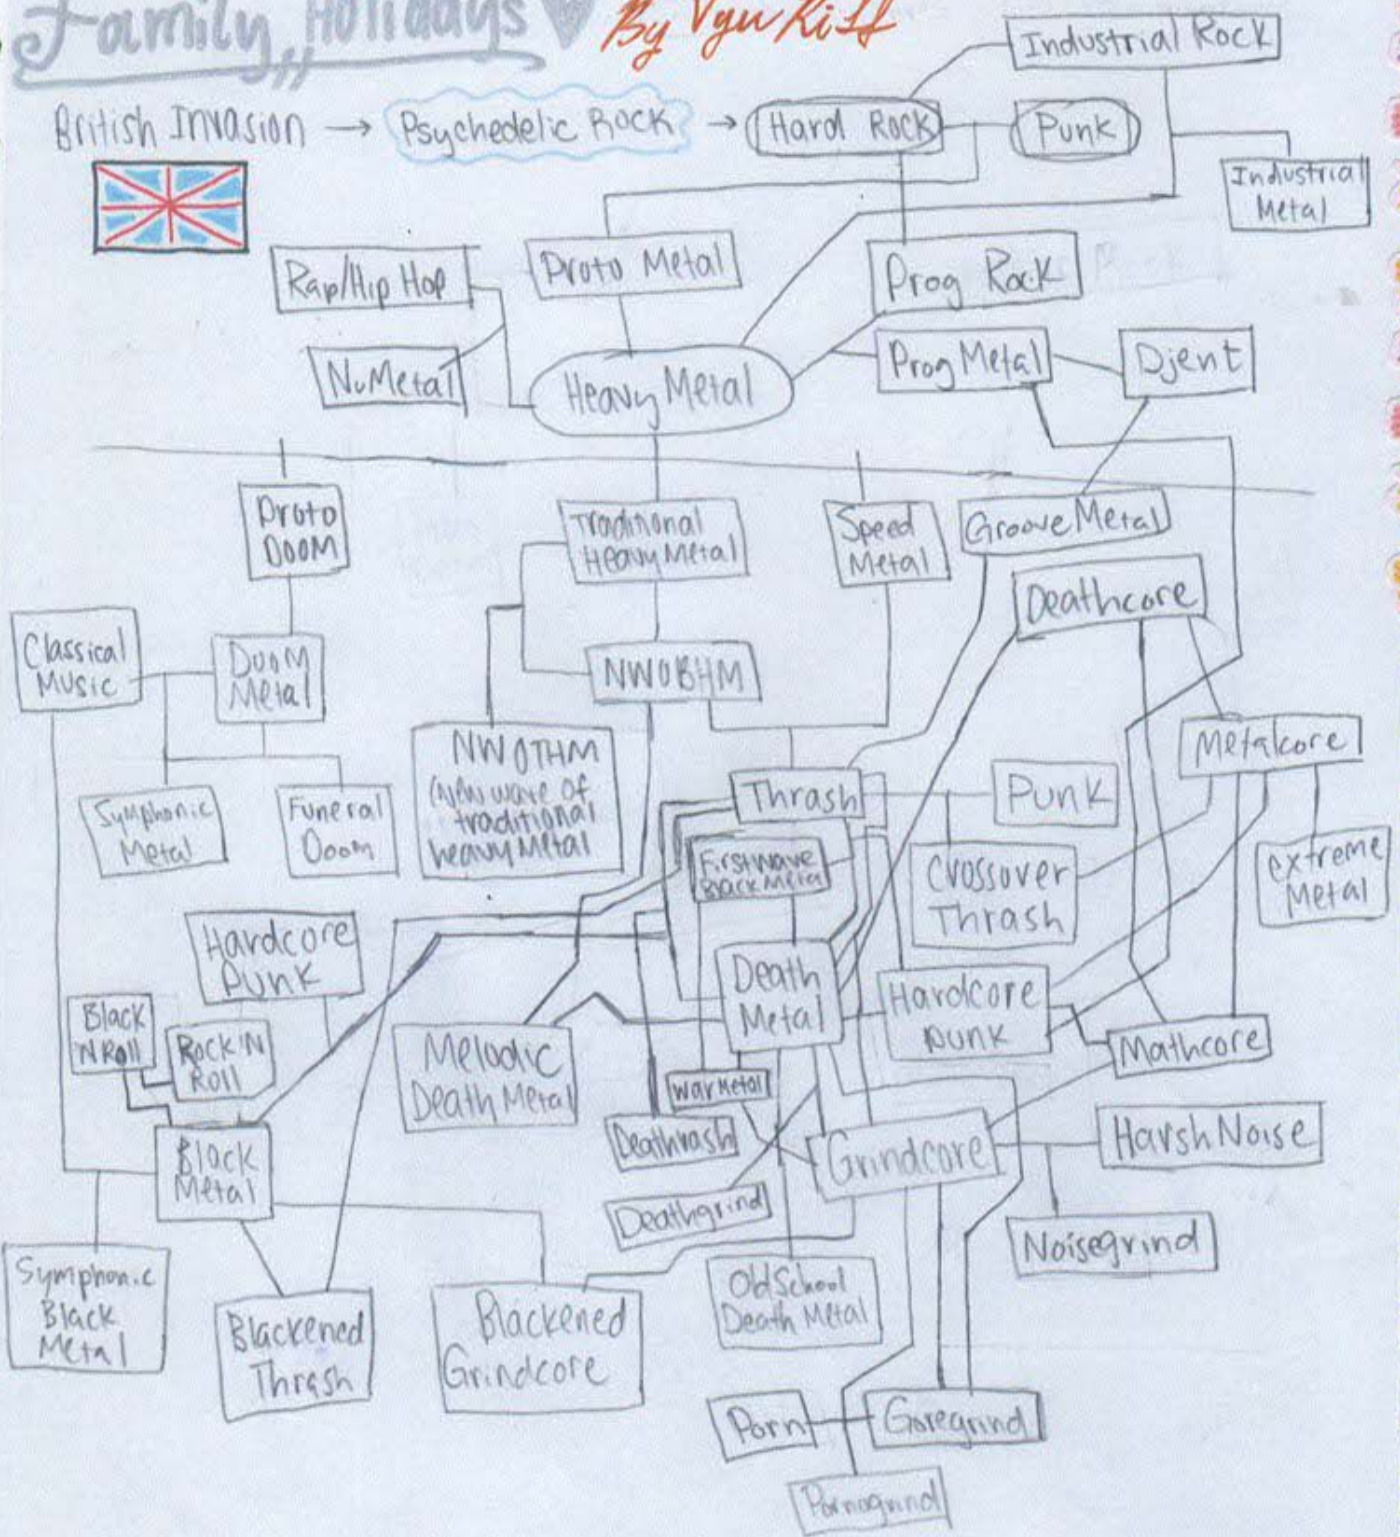 Family Holidays
By Vyu Riff
Industrial Rock
British Invasion → Psychedelic Rock → Hard Rock
Punk
Industrial
Metal
Rap/Hip Hop
Proto Metal
Prog Rock
NuMetal
Heavy Metal
Prog Metal
Djent
Proto
Doom
Traditional
Heavy Metal
Speed
Metal
Groove Metal
Deathcore
Classical
Music
Doom
Metal
NWOBHM
Metalcore
NWOTHM
(New wave of
traditional
heavy metal
Symphonic
Metal
Funeral
Doom
Thrash
Punk
First wave
Black Metal
Crossover
Thrash
extreme
Metal
Hardcore
Punk
Death
Metal
Hardcore
punk
Black
'N Roll
Rock 'N
Roll
Melodic
Death Metal
Mathcore
War Metal
Deathrash
Grindcore
Harsh Noise
Black
Metal
Deathgrind
Noisegrind
Symphonic
Black
Metal
Blackened
Thrash
Blackened
Grindcore
Old School
Death Metal
Porn
Goregrind
Pornogrind